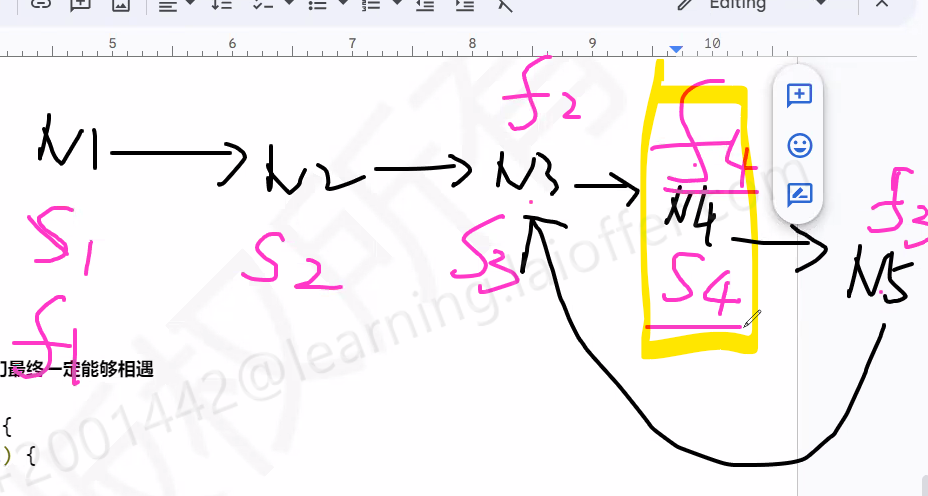 Editing
5 6 7 8 9 10
f2
f4
N1 N2 N3 N4 N5
f3
S1 S2 S3 S4
f1
最终一定能够相遇
{
) {
2001442@learning.laioffer.com